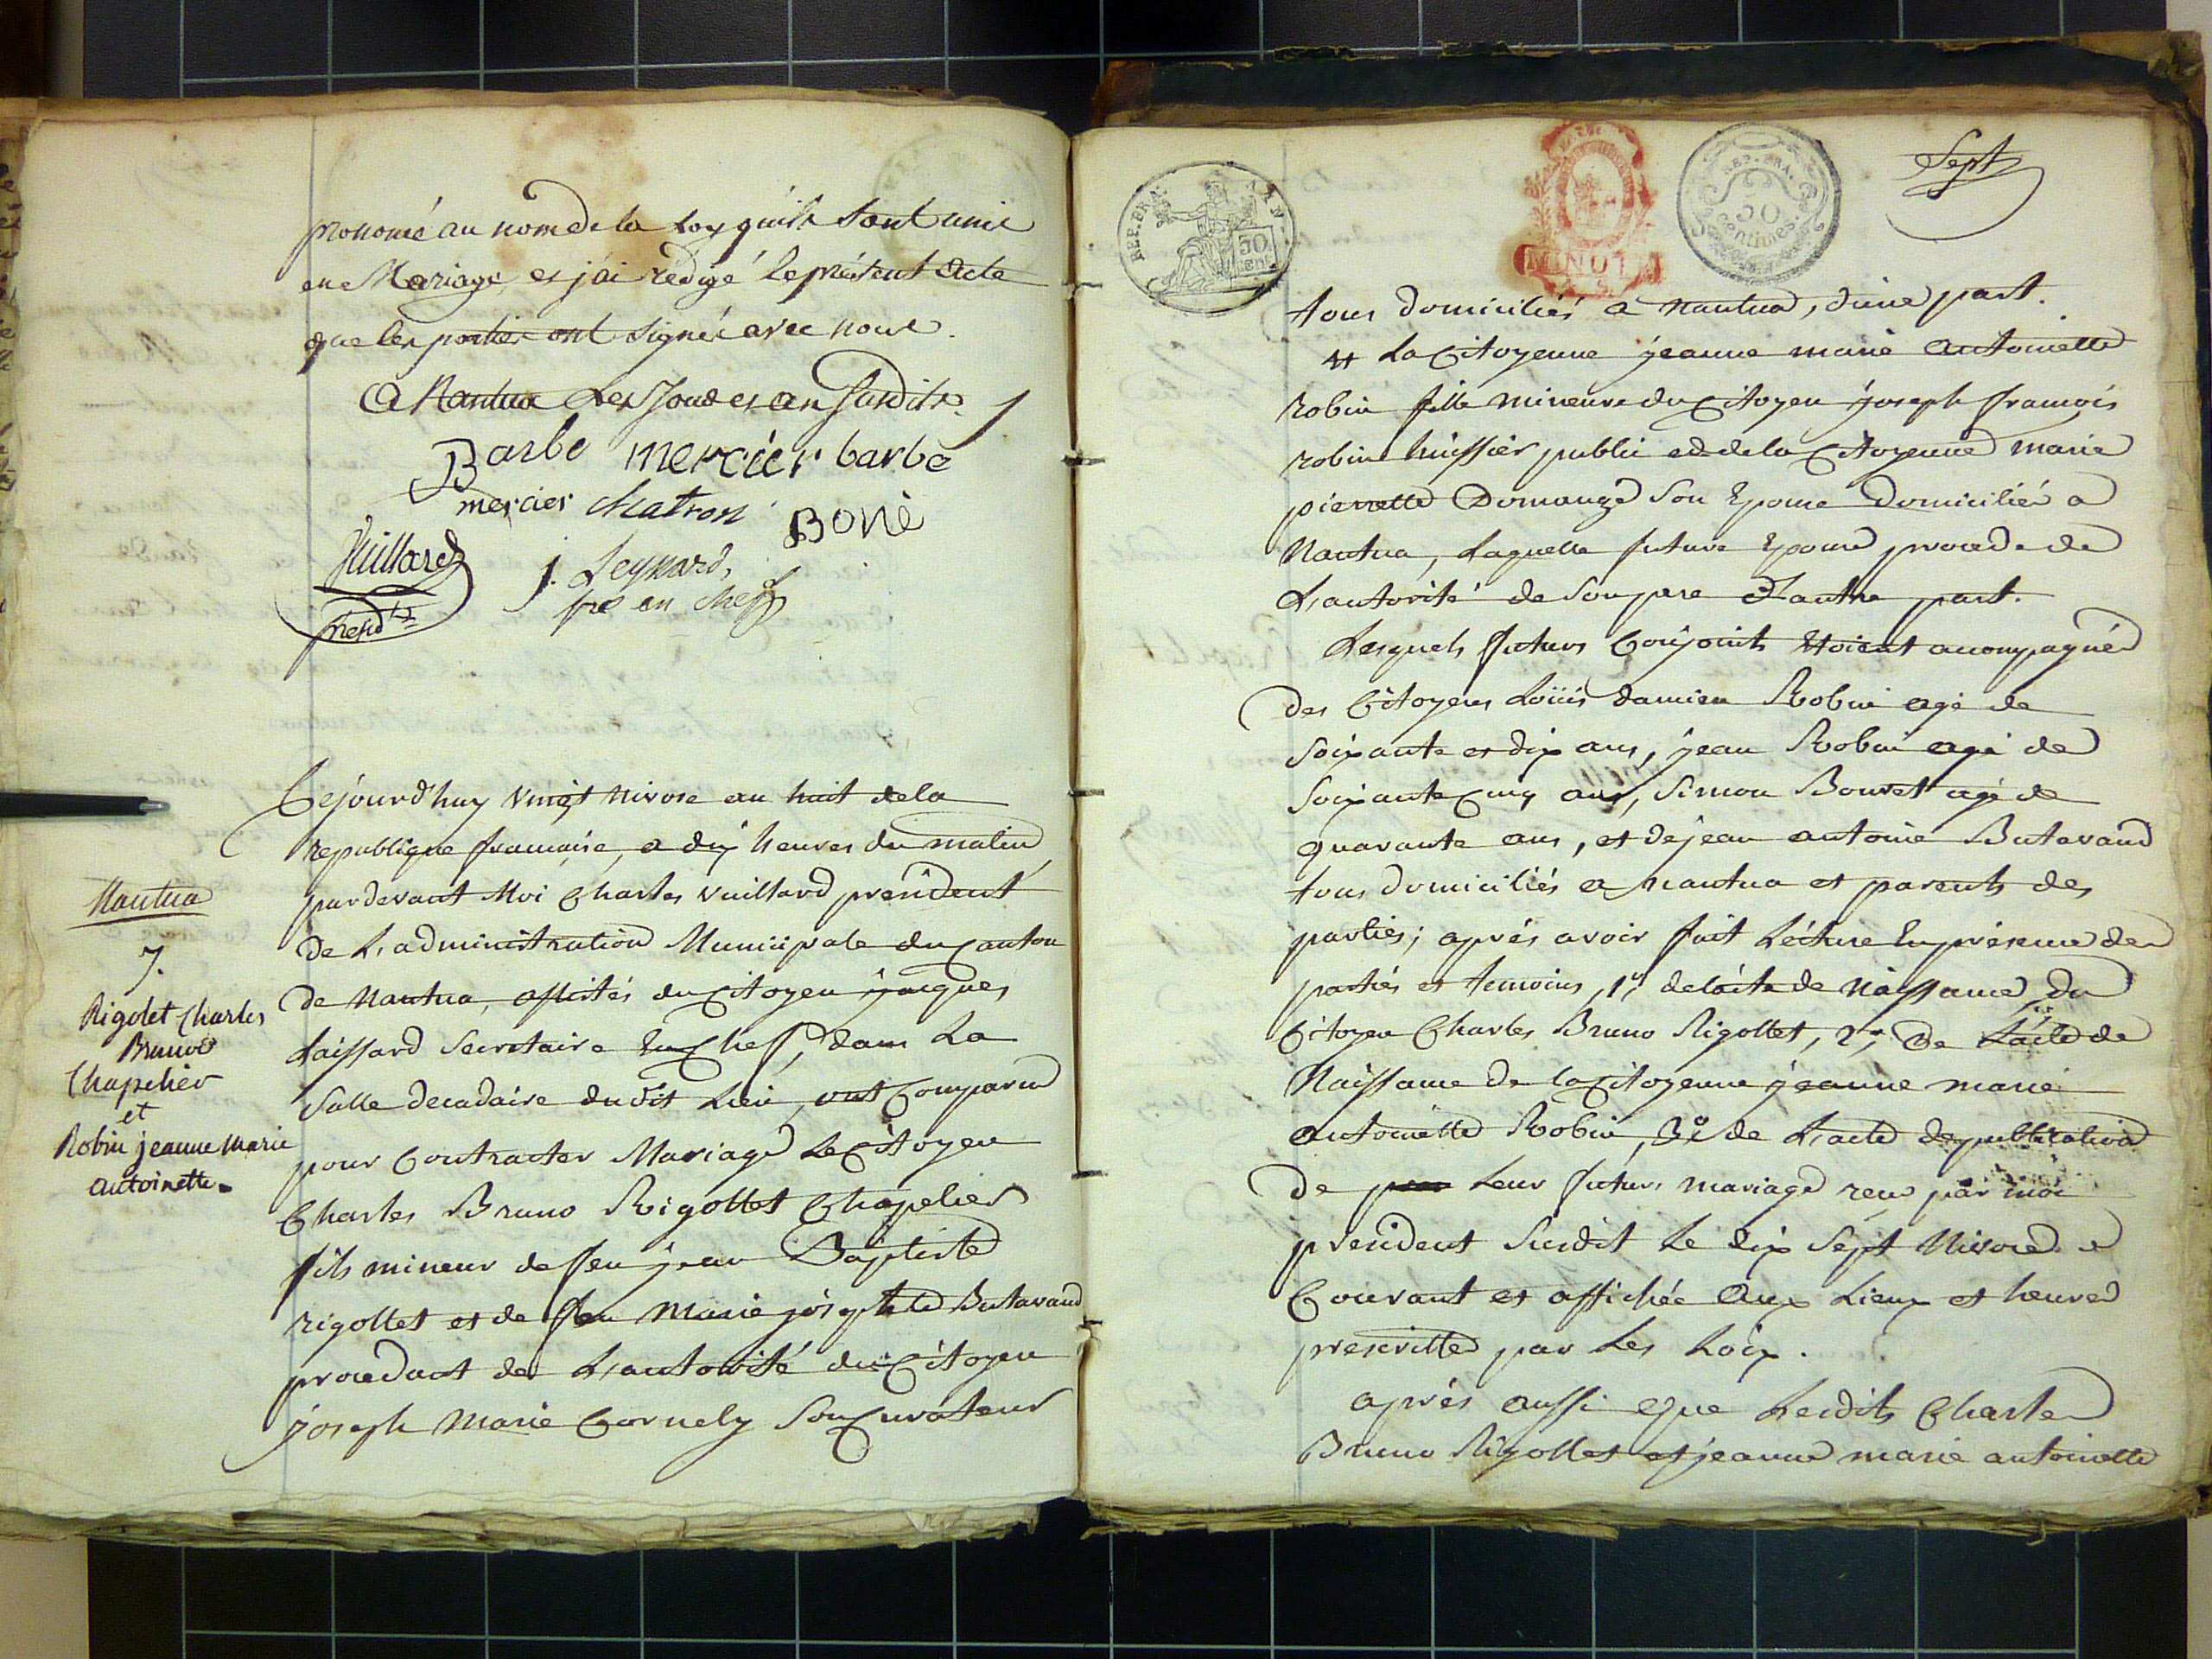 prononcé au nom de la Loy quils sont unis
en Mariage, et j'ai rédigé le présent acte
que les parties ont signés avec nous.
A Nantua Les Jour et an susdits.
Barbe mercier barbe
mercier Chatron Bonè
Vuillard
presdt
j. Leyssard,
sre en chef
Nantua
7.
Rigolet Charles
Bruno
Chapelier
et
Robin jeanne marie
antoinette.
Cejourd'huy vingt nivose an huit de la
republique francaise, a dix heures du matin
pardevant Moi Charles vuillard president
de L'administration Municipale du Canton
de Nantua, assistés du Citoyen jacques
Laissard Secretaire En Chef, dans La
Salle decadaire dudit Lieu, ont Comparus
pour Contracter Mariage Le Citoyen
Charles Bruno Rigollet Chapelier
fils mineur de feu jean Baptiste
rigollet et de feu Marie josephte Butavand
procedant de L'autorité du Citoyen
joseph Marie Cornely Son Curateur
REP. FRA
50
cent
MINUTE
REP. FRA.
50
Centimes
Sept
tous domiciliés a nantua, d'une part.
Et La Citoyenne jeanne marie antoinette
robin fille mineure du Citoyen joseph francois
robin huissier public et de la Citoyenne marie
pierrette Domange Son Epouse domiciliés a
Nantua, Laquelle future Epouse procede de
L'autorité de Son pere d'autre part.
Lesquels futurs Conjoints Etoient accompagnés
des Citoyens Loüis damien Robin agé de
soixante et dix ans, jean Robin agé de
Soixante Cinq ans, Simon Bouvet agé de
quarante ans, et de jean antoine Butavand
tous domiciliés a nantua et parents des
parties; après avoir fait Lecture En présence des
parties et temoins, 1o de lacte de naissance du
Citoyen Charles Bruno Rigollet, 2o de L'acte de
Naissance de la Citoyenne jeanne marie
antoinette Robin, 3o de L'acte de publication
de Leur futur mariage recu par moi
president Susdit le dix sept Nivose
Courant et affichée aux Lieux et heures
prescrittes par Les Loix.
après aussi que Lesdits Charles
Bruno Rigollet et jeanne marie antoinette